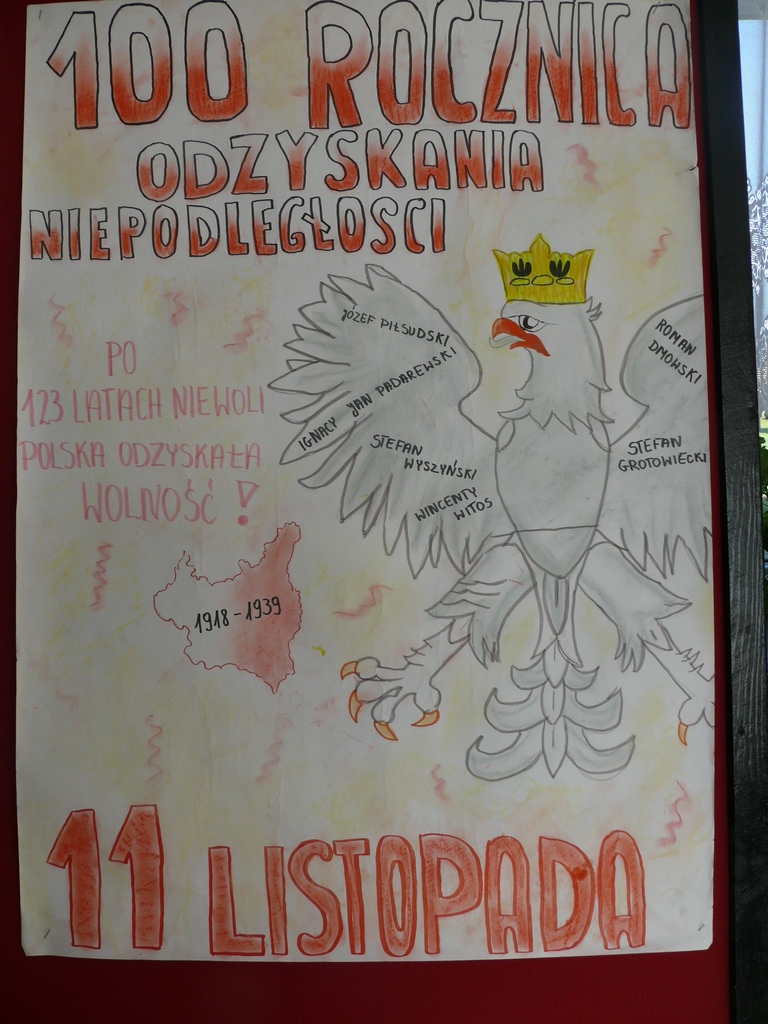 100 ROCZNICA
ODZYSKANIA
NIEPODLEGŁOSCI
JÓZEF PIŁSUDSKI
IGNACY JAN PADAREWSKI
STEFAN
WYSZYŃSKI
WINCENTY
WITOS
ROMAN
DMOWSKI
STEFAN
GROTOWIECKI
PO
123 LATACH NIEWOLI
POLSKA ODZYSKAŁA
WOLNOŚĆ!
1918-1939
11 LISTOPADA